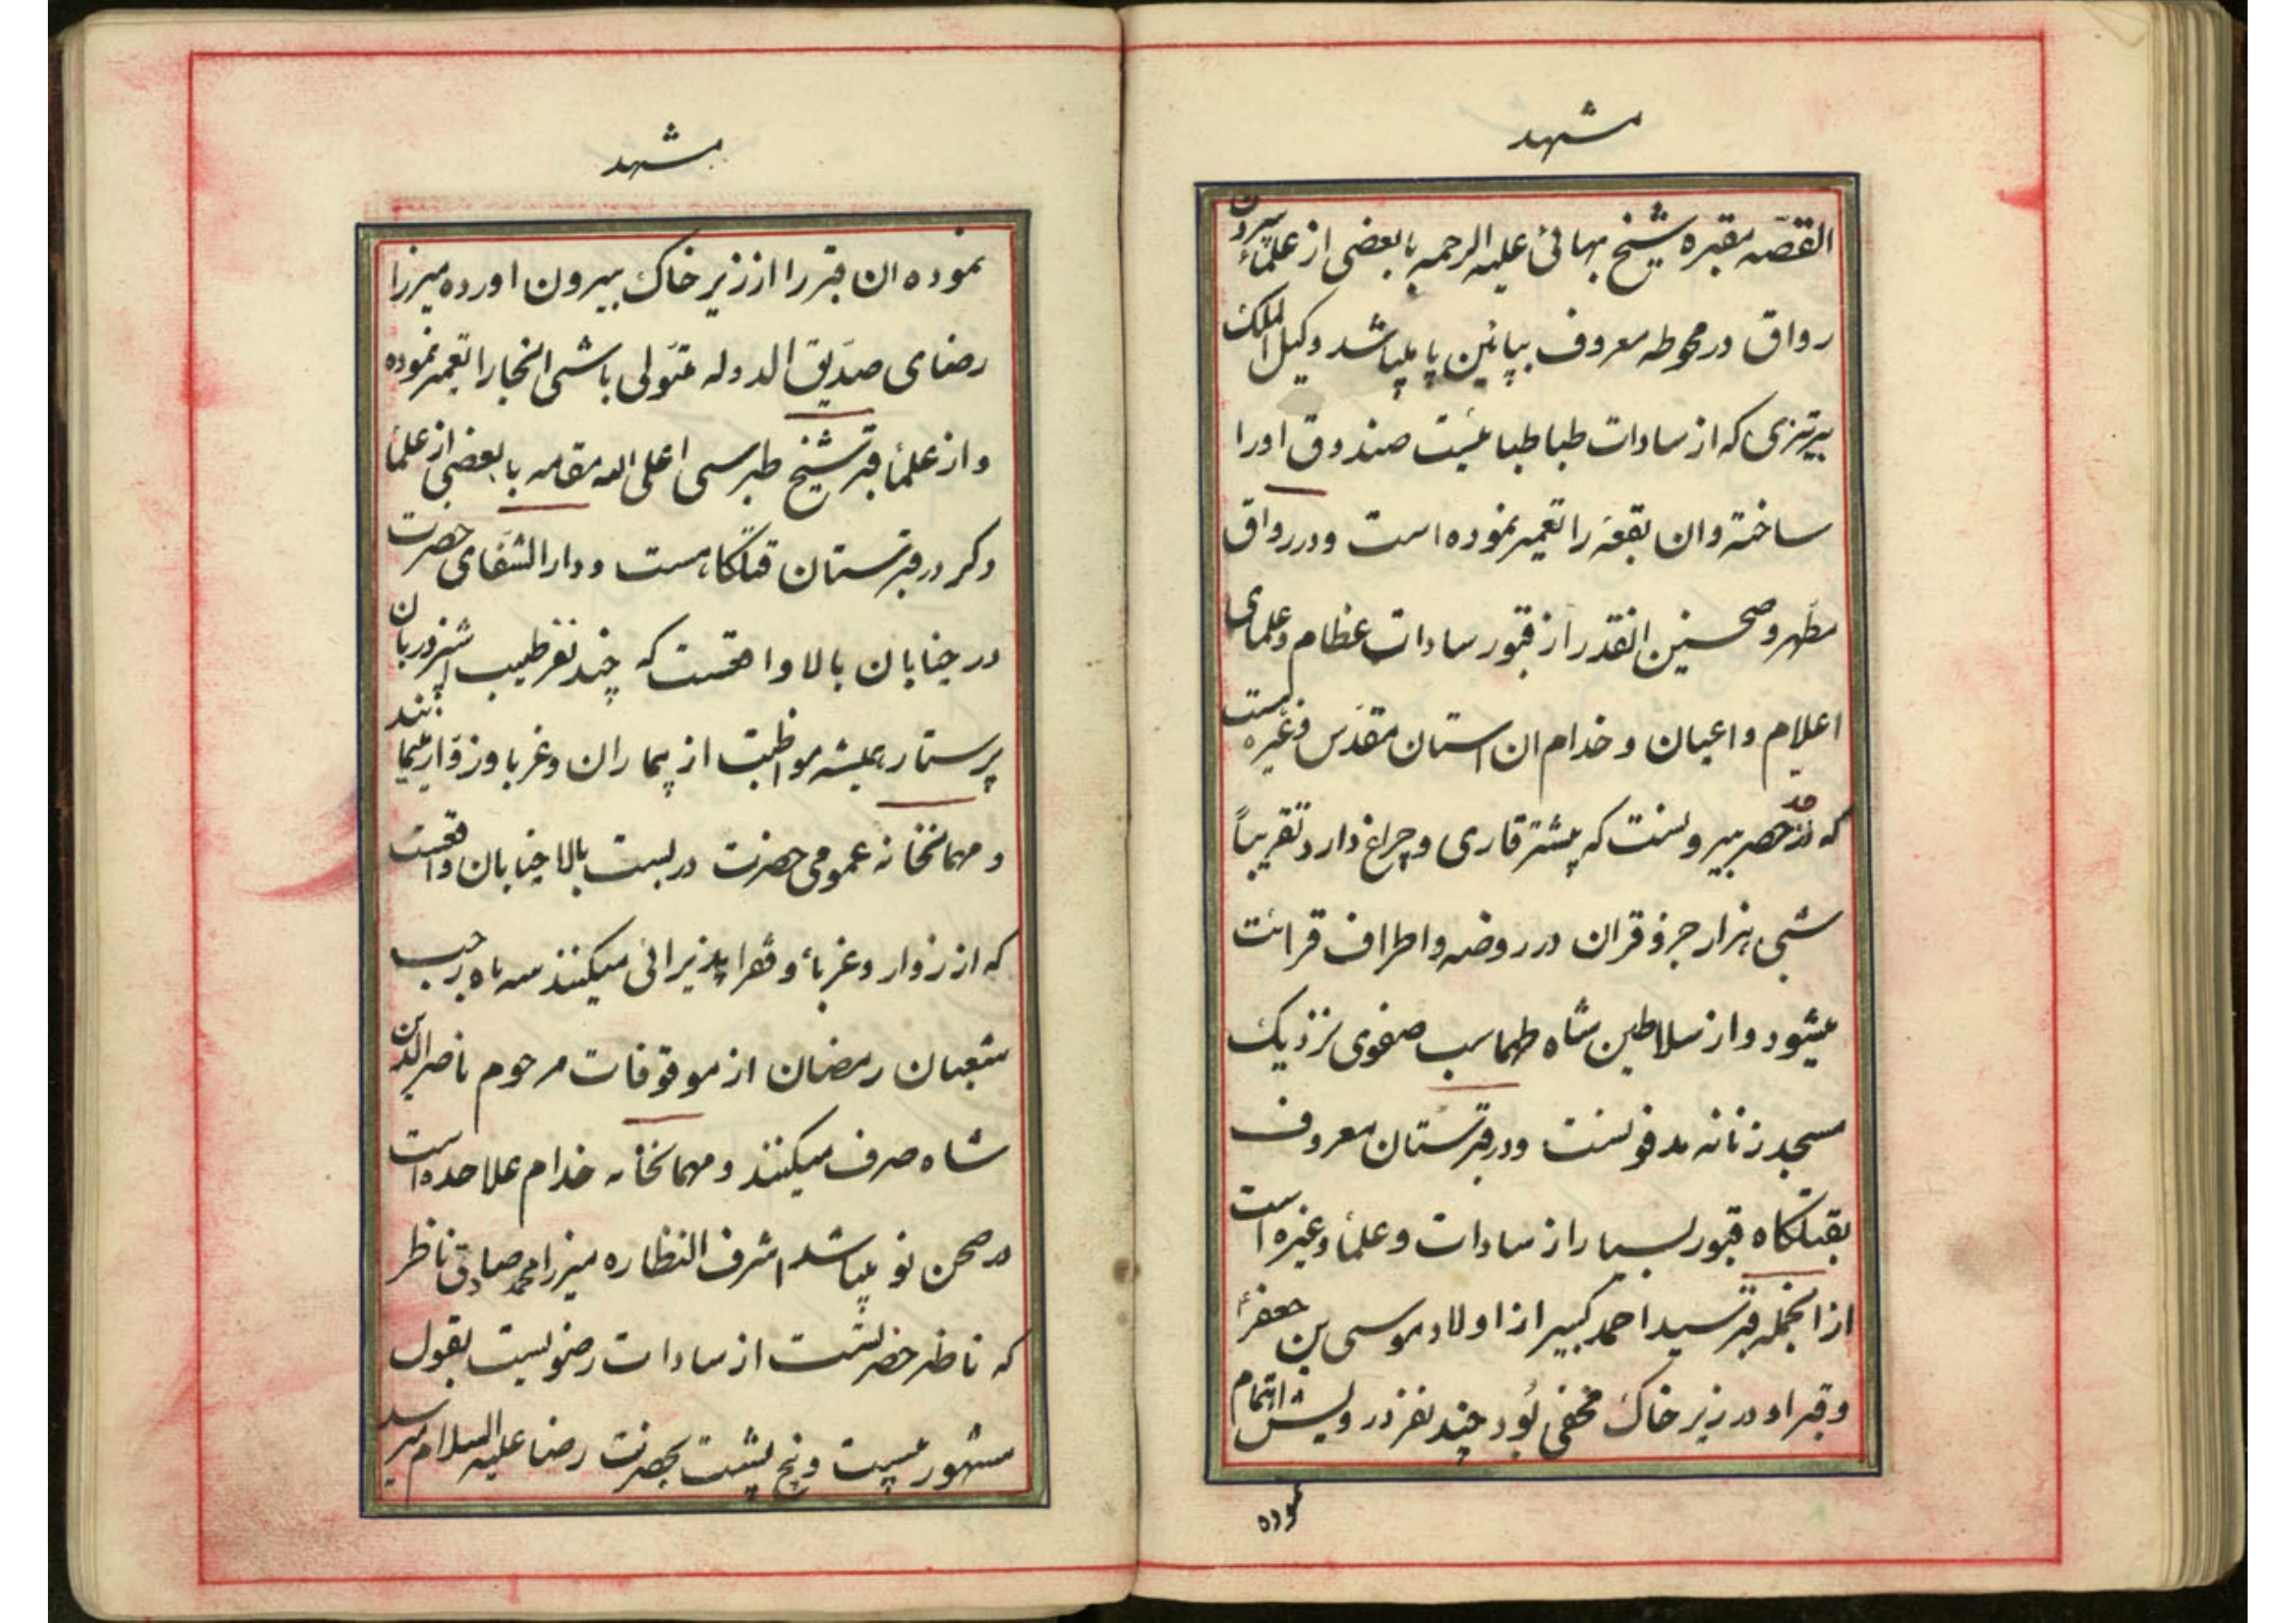 مشهد
القصّه مقبره شیخ بهائی علیه الرحمه با بعضی از علمأ بیرون
رواق در محوطه معروف بپائین پا میباشد وکیل الملک
تبریزی که از سادات طباطبائیست صندوق اورا
ساخته وان بقعه را تعمیر نموده است ودر رواق
مطهر وصحنین انقدر از قبور سادات عظام وعلمای
اعلام واعیان وخدام ان استان مقدس وغیره هست
که از حد حصر بیرونست که بیشتر قاری وچراغ دارد تقریباً
شبی هزار جزو قران در روضه واطراف قرائت
میشود واز سلاطین شاه طهماسب صفوی نزدیک
مسجد زنانه مدفونست ودر قبرستان معروف
بقتلکاه قبور بسیار از سادات وعلمأ وغیره است
از انجمله قبر سید احمد کبیر از اولاد موسی بن جعفرؑ
وقبر او در زیر خاک مخفی بُود چند نفر درویش اهتمام
نموده
مشهد
نموده ان قبر را از زیر خاک بیرون اورده میرزا
رضای صدّیق الدوله متولی باشی انجارا تعمیر نموده
واز علمأ قبر شیخ طبرسی اعلی الله مقامه با بعضی از علمأ
دکر در قبرستان قتلکاه هست ودار الشفای حضرت
در خیابان بالا واقعست که چند نفر طبیب اشپز دربان
پرستار همیشه مواظبت از بیماران وغربا وزوّار مینمایند
ومهمانخانه عمومی حضرت در بست بالا خیابان واقعست
که از زوار وغربأ وفقرا پذیرائی میکنند سه ماه رجب
شعبان رمضان از موقوفات مرحوم ناصرالدین
شاه صرف میکنند ومهمانخانه خدام علاحده است
در صحن نو میباشد اشرف النظاره میرزا محمد صادق ناظر
که ناظر حضرتست از سادات رضویست بقول
مشهور بیست وپنج پشت بحضرت رضا علیه السلام میرسد